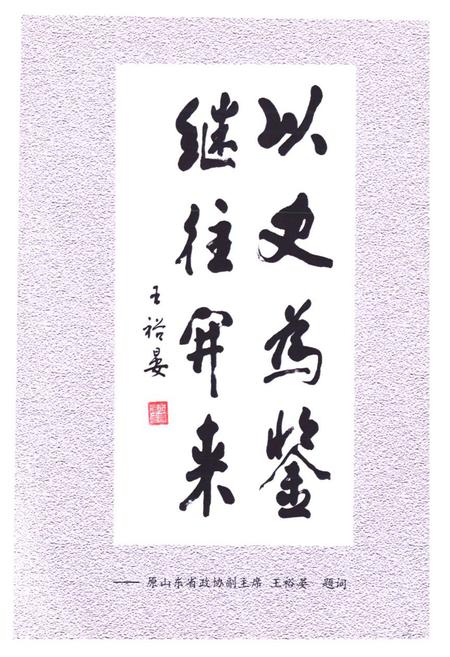 以史为鉴
继往开来
王裕晏
—— 原山东省政协副主席 王裕晏 题词